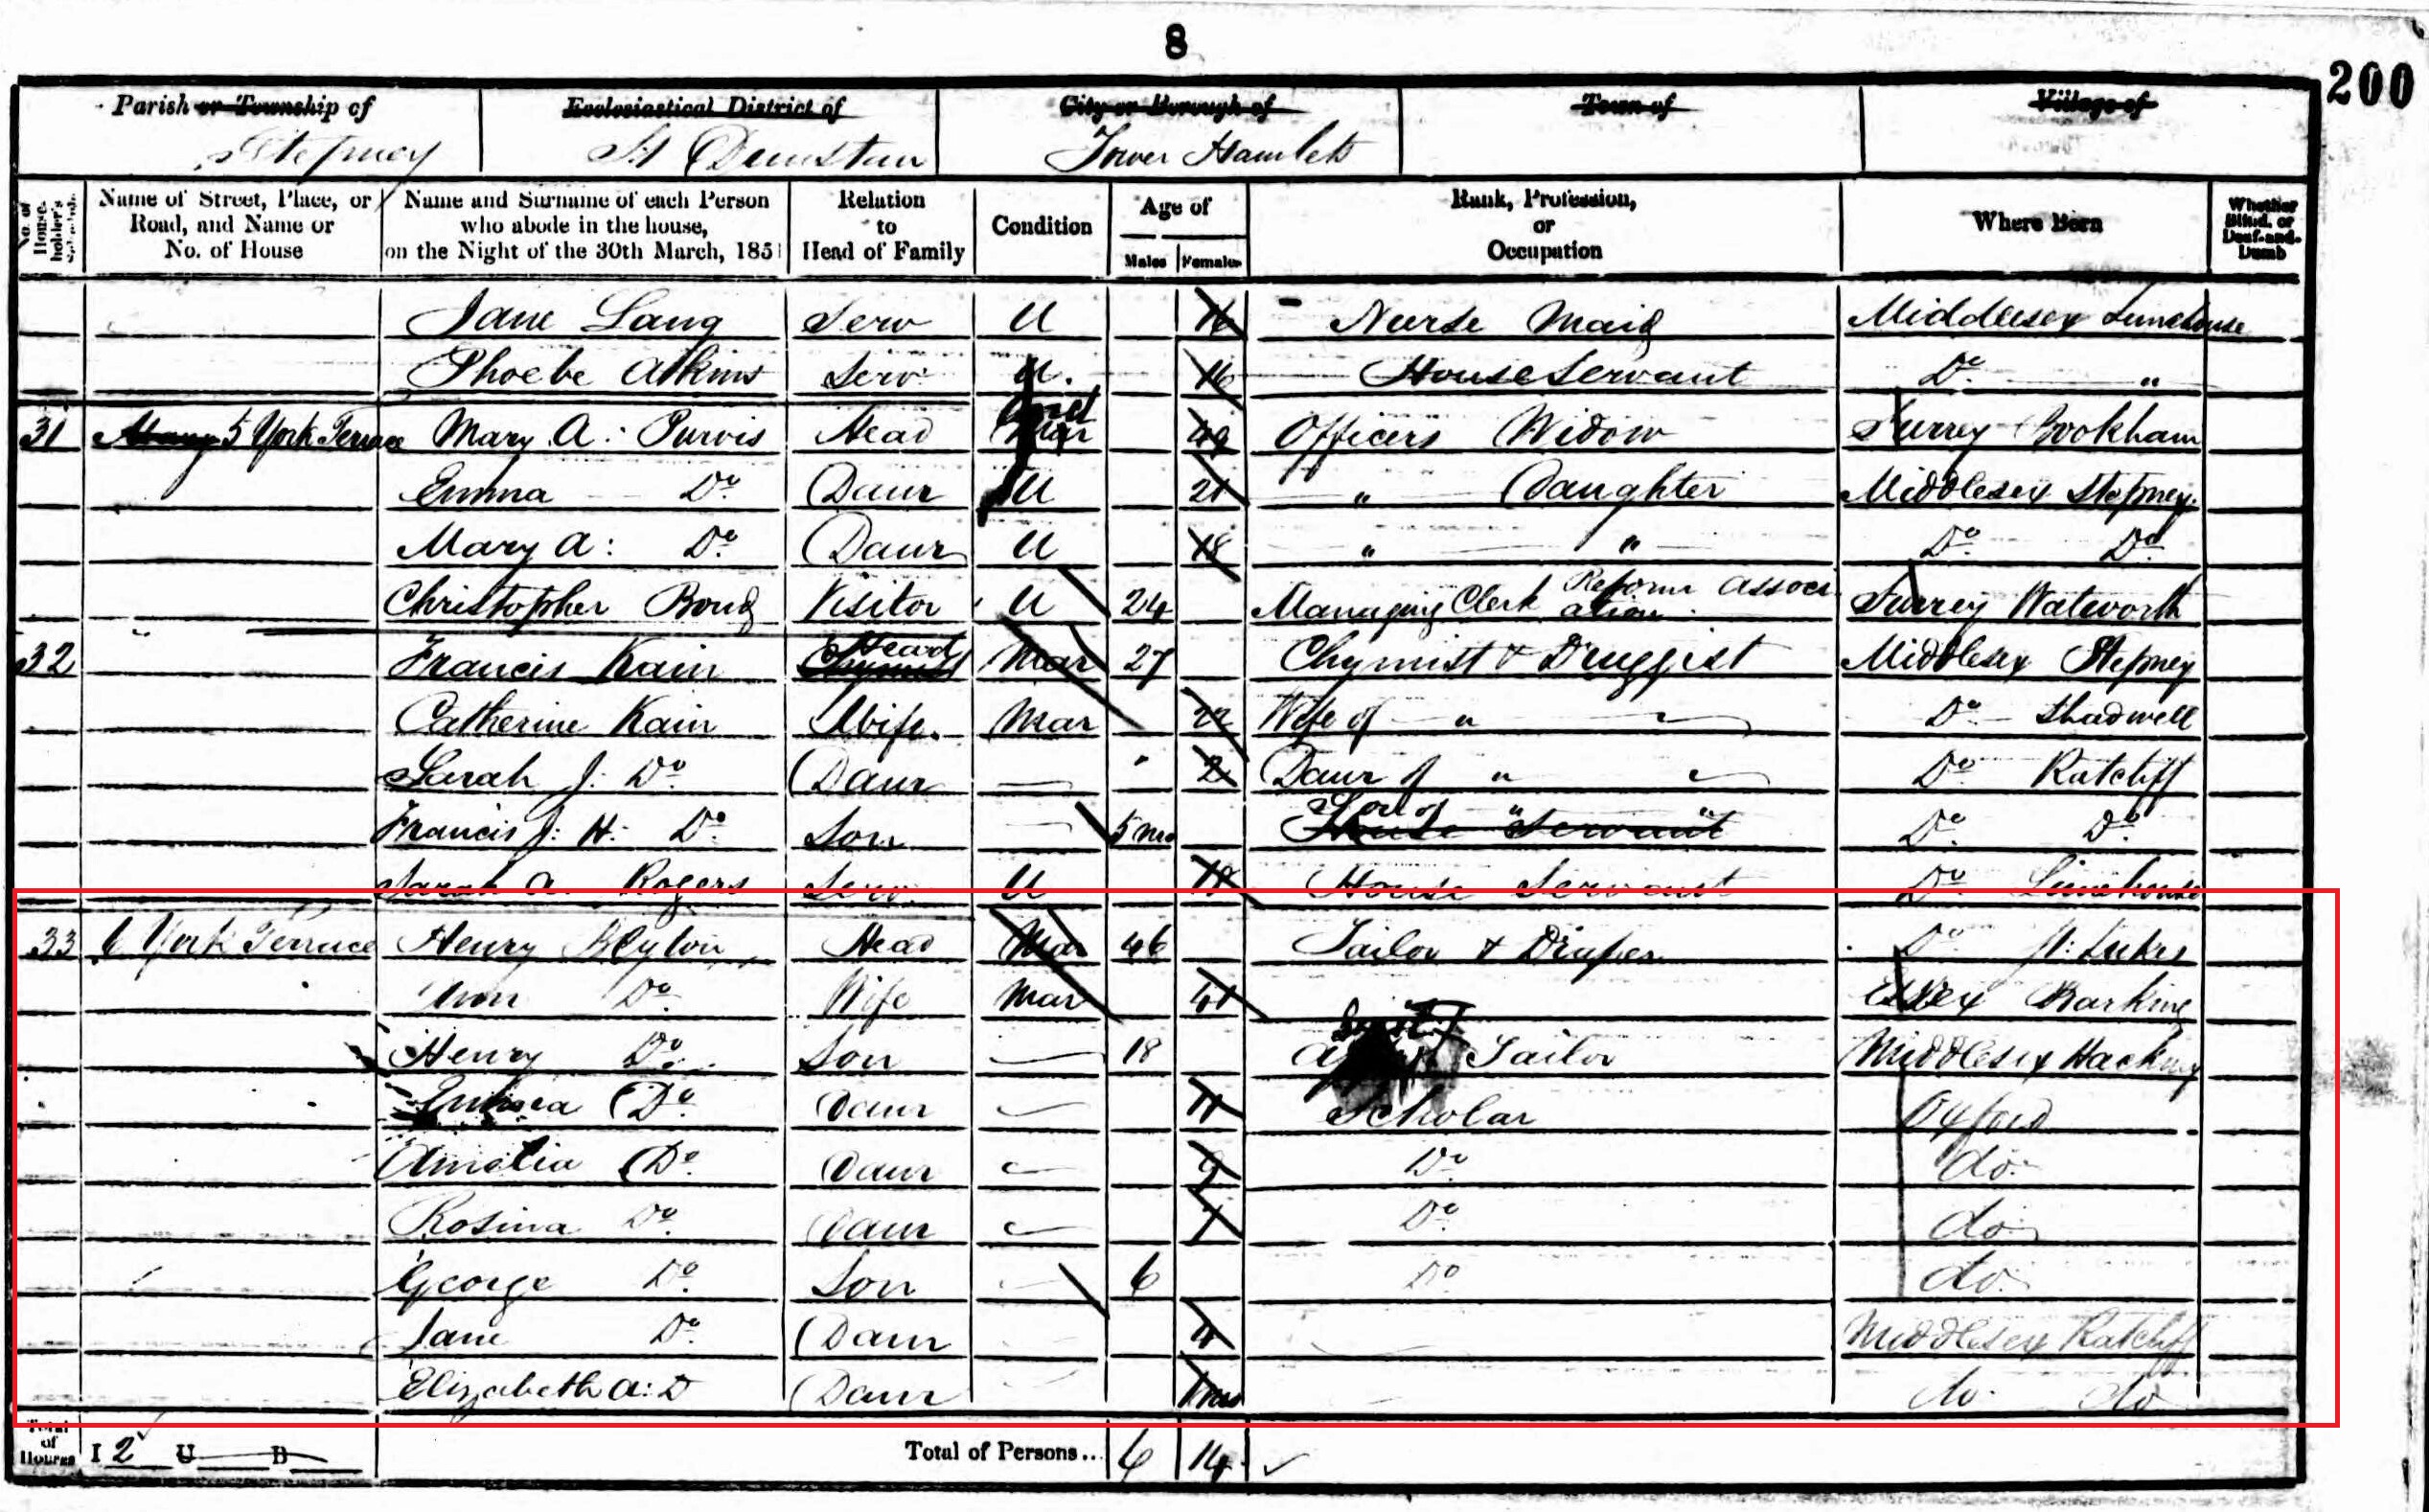 8
200
Parish or Township of
Ecclesiastical District of
City or Borough of
Town of
Village of
Stepney
St Dunstan
Tower Hamlets
No. of House-holder's Schedule
Name of Street, Place, or Road, and Name or No. of House
Name and Surname of each Person who abode in the house, on the Night of the 30th March, 1851
Relation to Head of Family
Condition
Age of
Males Females
Rank, Profession, or Occupation
Where Born
Whether Blind, or Deaf-and-Dumb
Jane Lang Serv U 16 Nurse Maid Middlesex Limehouse
Phoebe Atkins Serv U. 16 House Servant Do "
31 5 York Terrace Mary A: Purvis Head 49 Officers Widow Surrey Bookham
Emma Do Daur U 21 " Daughter Middlesex Stepney
Mary A: Do Daur U 18 " " Do Do
Christopher Bond Visitor U 24 Managing Clerk Reform Association Surrey Walworth
32 Francis Kain Head Mar 27 Chymist & Druggist Middlesex Stepney
Catherine Kain Wife Mar 22 Wife of " Do Shadwell
Sarah J: Do Daur 2 Daur of " Do Ratcliff
Francis J: H: Do Son 5 mo Son of " " House Servant Do Do
Sarah A. Rogers Serv U 18 House Servant Do Limehouse
33 6 York Terrace Henry Blyton Head Mar 46 Tailor & Draper Do St: Lukes
Ann Do Wife Mar 41 Essex Barking
Henry Do Son 18 Tailor Middlesex Hackney
Do Daur 11 Scholar Oxford
Amelia Do Daur 9 Do do
Rosina Do Daur 7 Do do
George Do Son 6 Do do
Jane Do Daur 4 Middlesex Ratcliff
Elizabeth A: D Daur do do
Total of Houses I 2 U B Total of Persons... 6 14